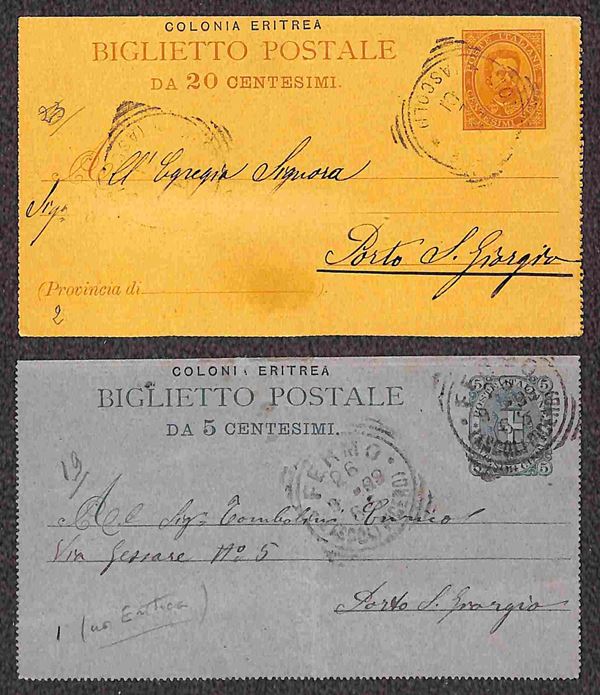 COLONIA ERITREA
BIGLIETTO POSTALE
DA 20 CENTESIMI.
POSTE ITALIANE
CENTESIMI
ASCOLI
All' Egregia Signora
Sigra
Porto S. Giorgio
(Provincia di ).
2
COLONIA ERITREA
BIGLIETTO POSTALE
DA 5 CENTESIMI.
5 5
FERMO
(ASCOLI PICENO)
19/
FERMO
26
99
(ASCOLI PICENO)
Al Sigr Tombolini Enrico
Via Gessare No 5
Porto S. Giorgio
1 (no Eritrea)